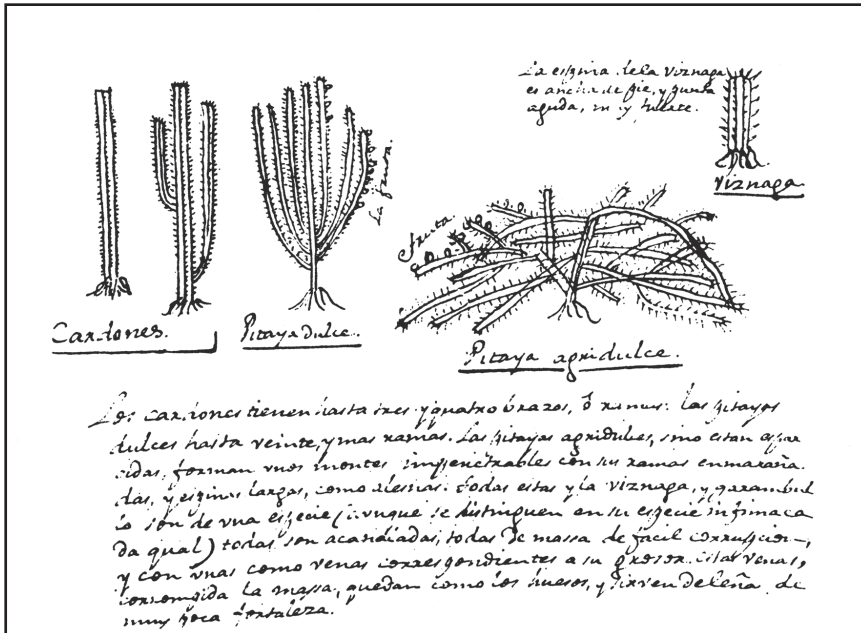 La espina dela Viznaga
es ancha de pie, y punta
aguda, muy fuerte.
Viznaga
La fruta.
fruta.
Cardones.
Pitaya dulce.
Pitaya agridulce.
Los cardones tienen hasta tres y quatro brazos, ò ramas: las pitayas
dulces hasta veinte, y mas ramas. Las pitayas agridulces, sino estan espar
cidas, forman unos montes impenetrables con sus ramas enmaraña
das, y espinas largas, como alesnas. todas estas y la viznaga, y garambul
lo son de una especie (aunque se distinguen en su especie infima ca
da qual) todas son acanaladas, todas de massa de facil corrupcion,
y con unas como venas correspondientes a su grosor. estas venas,
corrompida la massa, quedan como los huesos, y sirven de leña de
muy poca fortaleza.